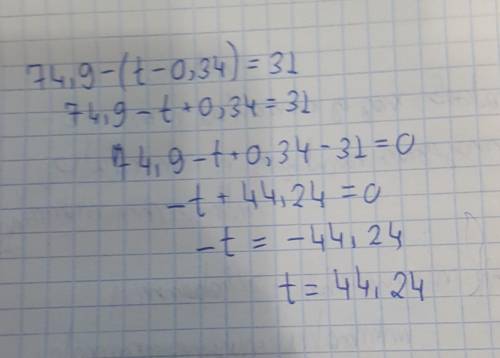 74,9-(t-0,34)=31
74,9-t+0,34=31
74,9-t+0,34-31=0
-t+44,24=0
-t=-44,24
t=44,24